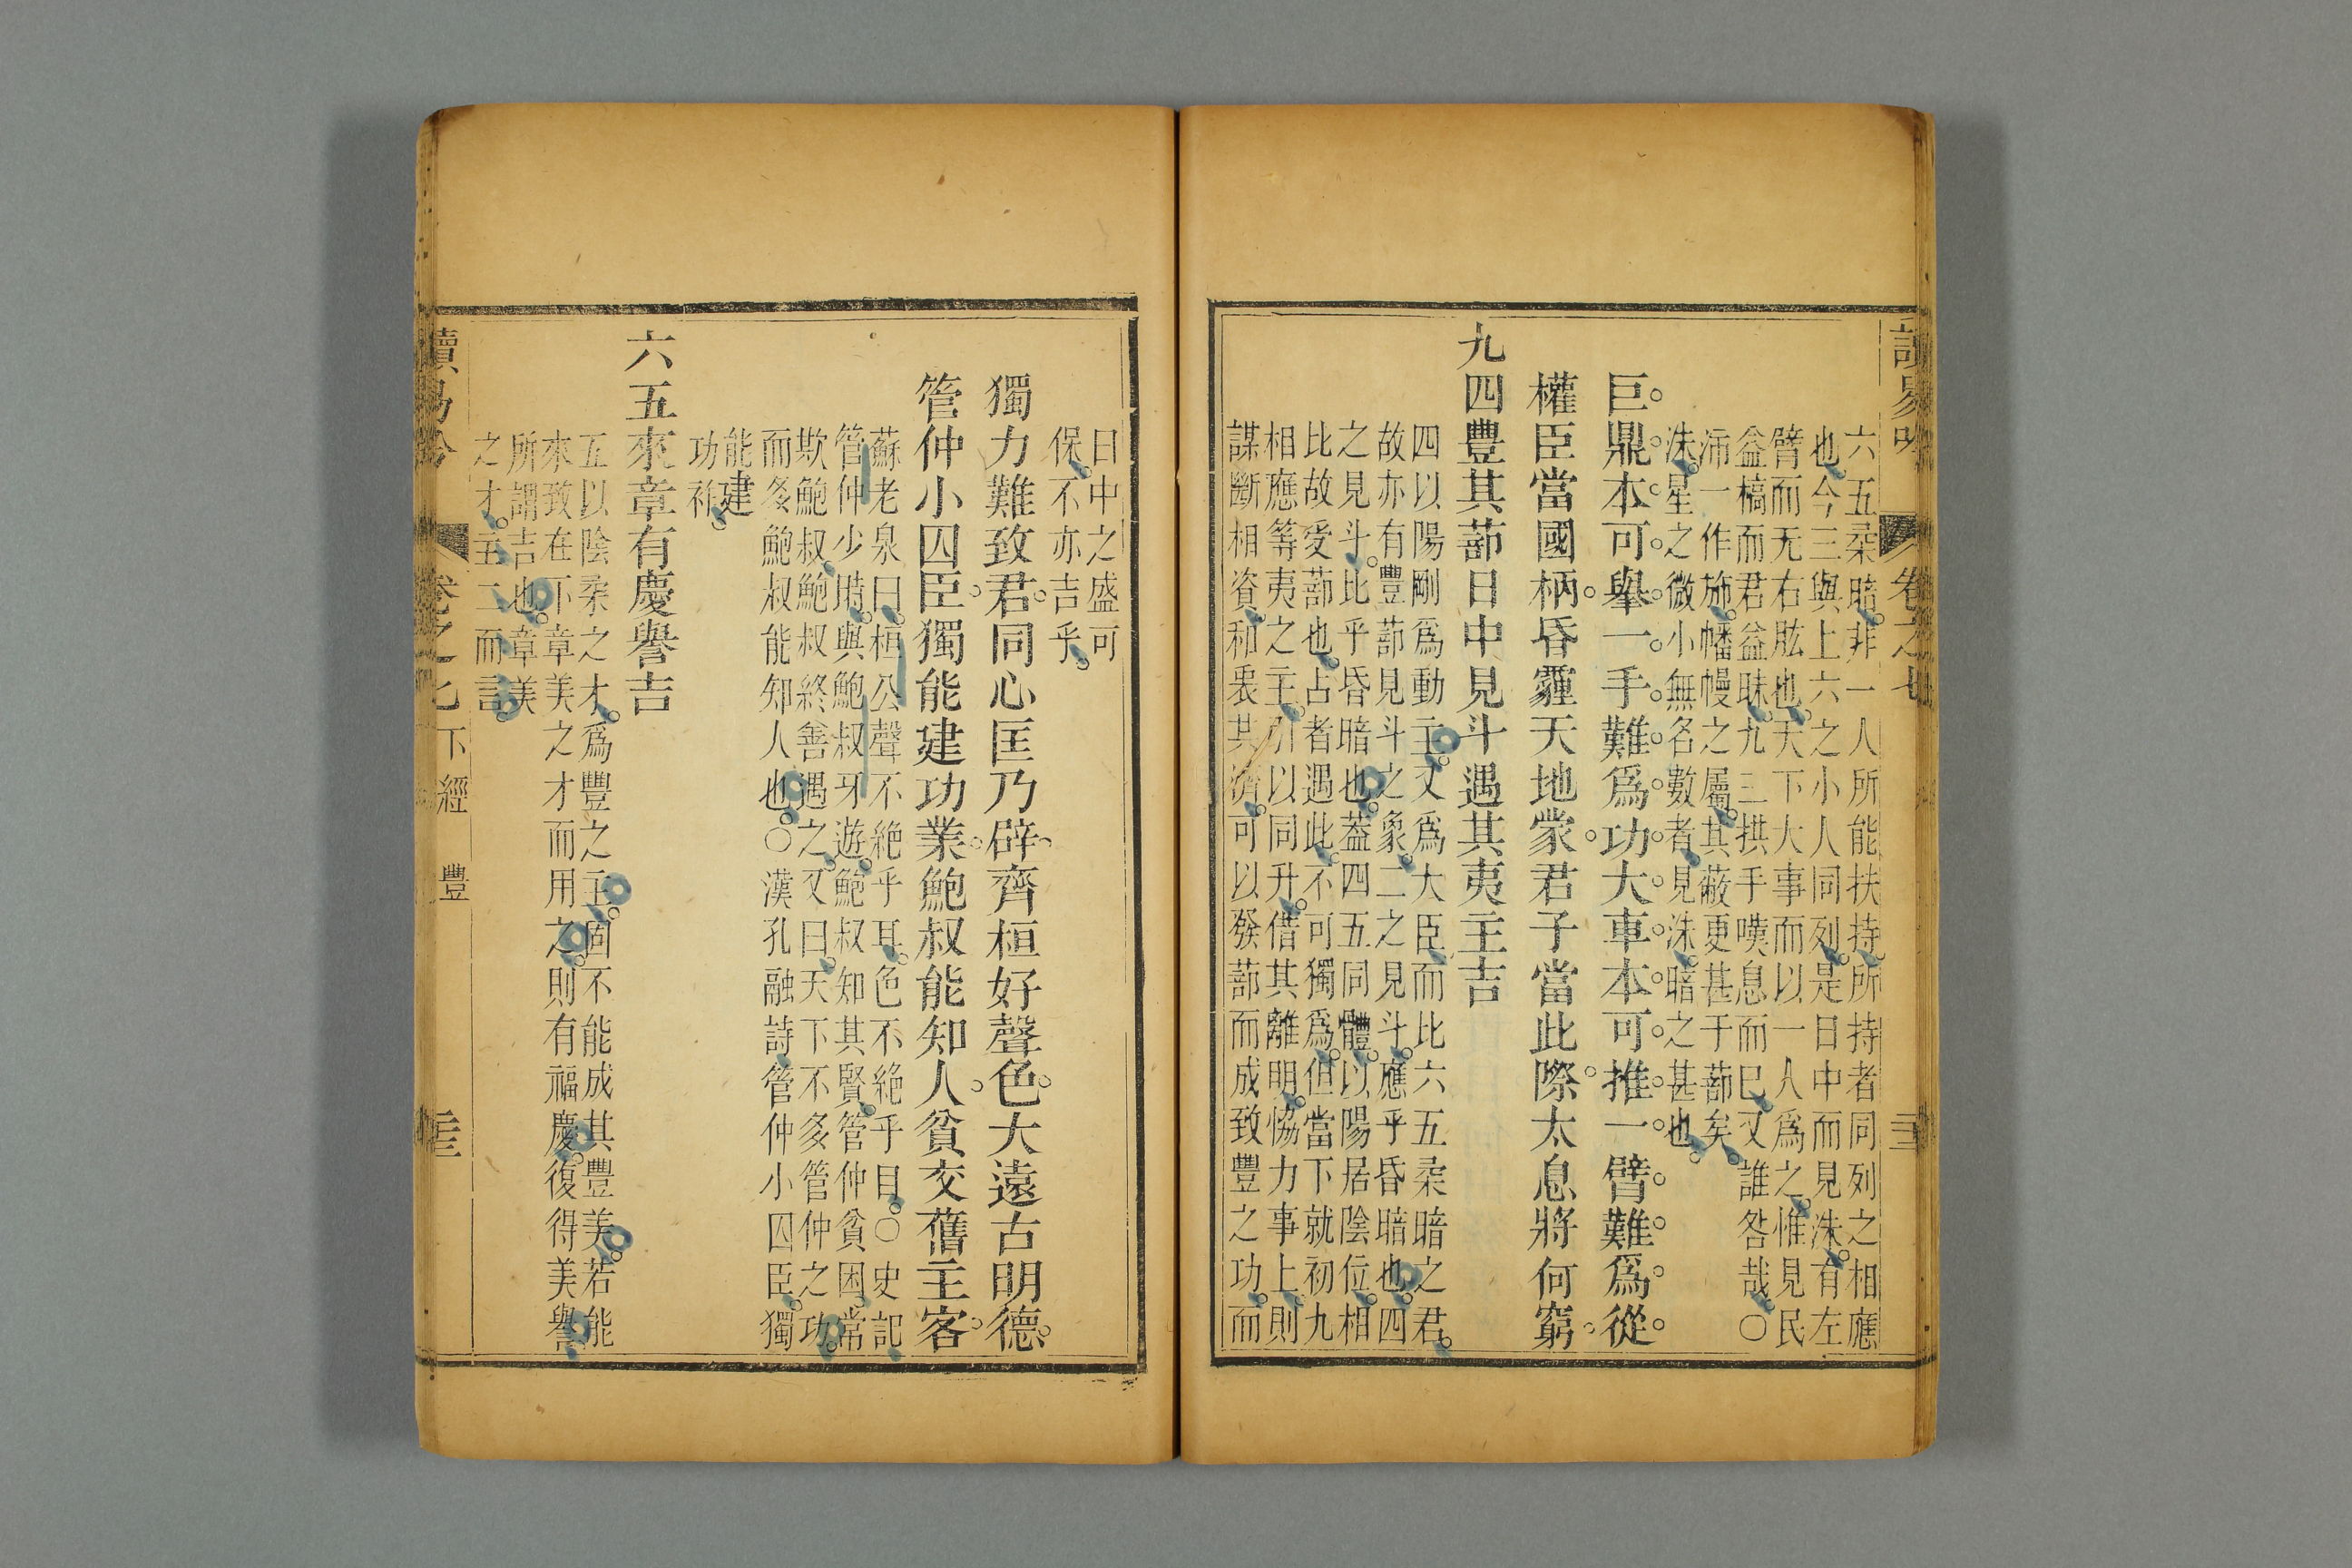 六五柔暗非一人所能扶持所持者同列之相應
也今三與上六之小人同列是日中而見沬有左
臂而无右肱也天下大事而以一人爲之惟見民
益槁而君益昧九三拱手嘆息而已又誰咎哉○
沛一作旆幡幔之屬其蔽更甚于蔀矣
沬星之微小無名數者見沬暗之甚也
巨鼎本可擧一手難爲功大車本可推一臂難爲從
權臣當國柄昏霾天地蒙君子當此際太息將何窮
九四豐其蔀日中見斗遇其夷主吉
四以陽剛爲動主又爲大臣而比六五柔暗之君
故亦有豐蔀見斗之象二之見斗應乎昏暗也四
之見斗比乎昏暗也葢四五同體以陽居陰位相
比故愛蔀也占者遇此不可獨爲但當下就初九
相應等夷之主引以同升借其離明恊力事上則
謀斷相資和衷其濟可以發蔀而成致豐之功而
日中之盛可
保不亦吉乎
獨力難致君同心匡乃辟齊桓好聲色大遠古明德
管仲小囚臣獨能建功業鮑叔能知人貧交舊主客
蘇老泉曰桓公聲不絶乎耳色不絶乎目○史記
管仲少時與鮑叔牙遊鮑叔知其賢管仲貧困常
欺鮑叔鮑叔終善遇之又曰天下不多管仲之功
而多鮑叔能知人也○漢孔融詩管仲小囚臣獨
能建
功祚
六五來章有慶譽吉
五以陰柔之才爲豐之主固不能成其豐美若能
來致在下章美之才而用之則有福慶復得美譽
所謂吉也章美
之才主二而言
卷之七 下經 豐